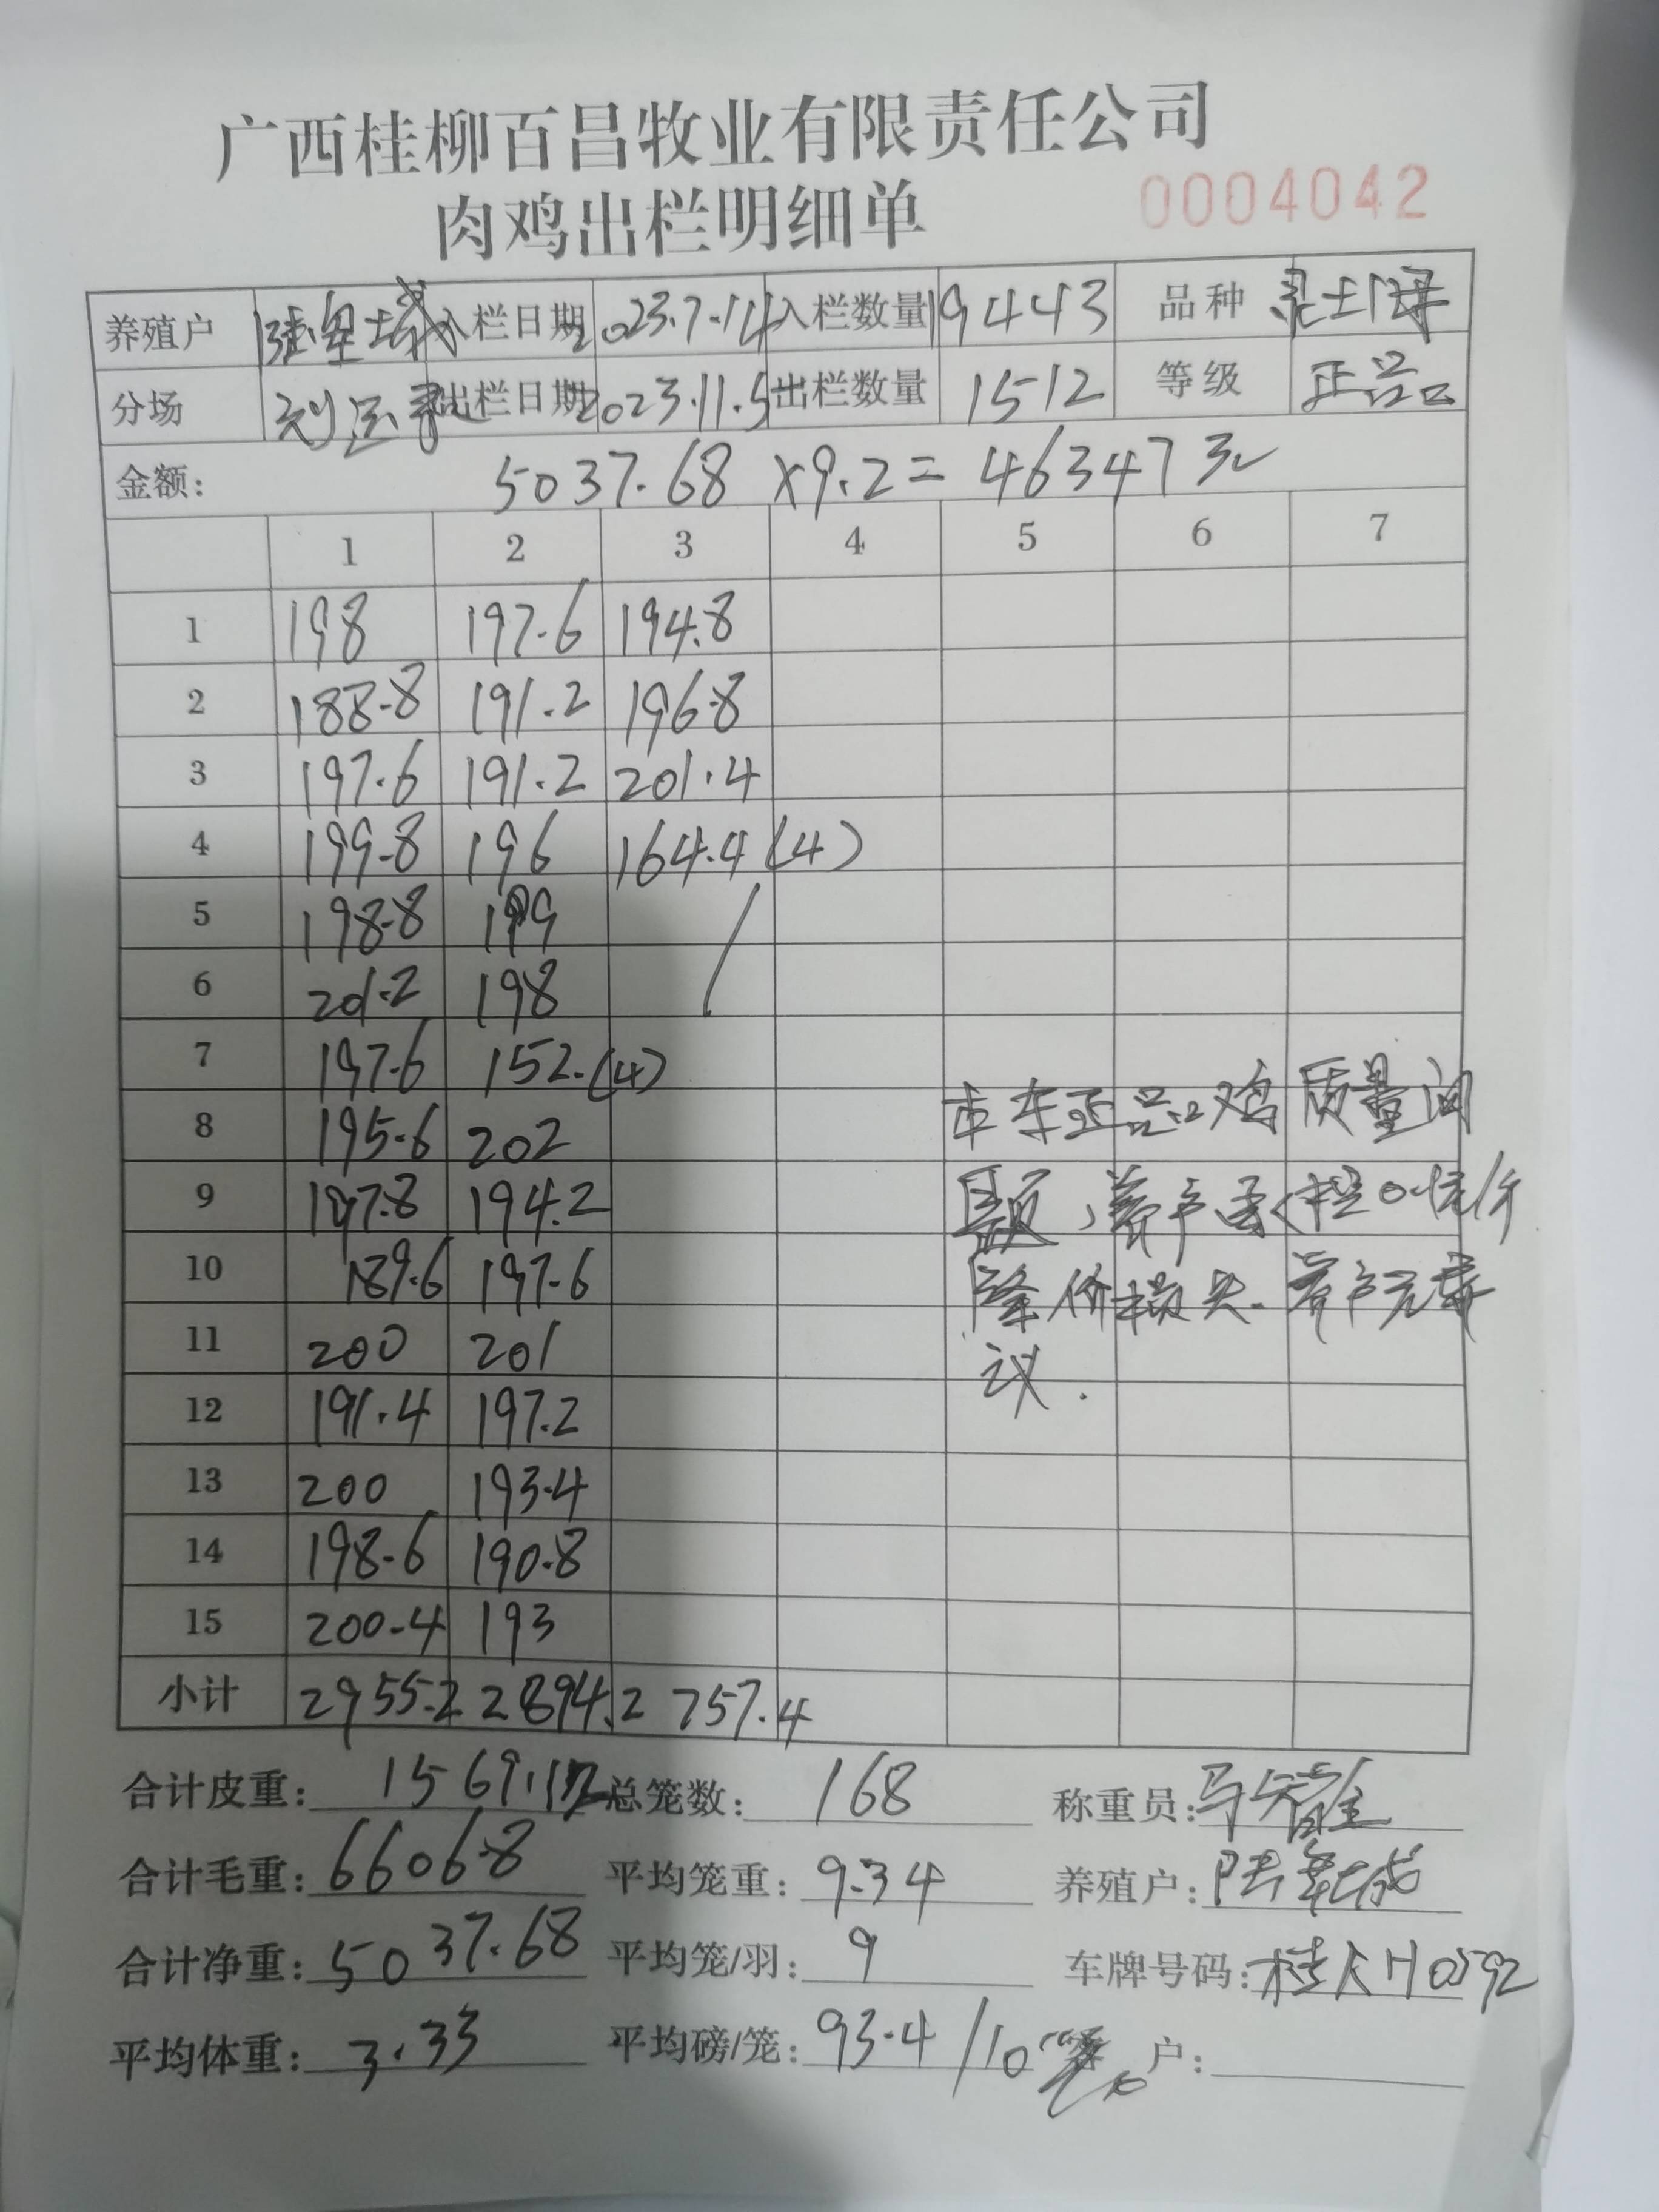 广西桂柳百昌牧业有限责任公司
肉鸡出栏明细单 0004042
养殖户 入栏日期 2023.7.14 入栏数量 19443 品种
分场 出栏日期 2023.11.5 出栏数量 1512 等级 正品
金额: 5037.68 ×9.2= 46347元
1 2 3 4 5 6 7
1 198 197.6 194.8
2 188.8 191.2 196.8
3 197.6 191.2 201.4
4 199.8 196 164.4 (4)
5 198.8 199
6 201.2 198
7 197.6 152.(4)
8 195.6 202 本车正品鸡质量问
9 197.8 194.2 题,养户
10 189.6 197.6 降价损失.养户无异
11 200 201 议.
12 191.4 197.2
13 200 193.4
14 198.6 190.8
15 200.4 193
小计 2955.2 2894.2 757.4
合计皮重: 1569.12 总笼数: 168 称重员:
合计毛重: 6606.8 平均笼重: 9.34 养殖户:
合计净重: 5037.68 平均笼/羽: 9 车牌号码: 桂AH0592
平均体重: 3.33 平均磅/笼: 93.4/10 户: